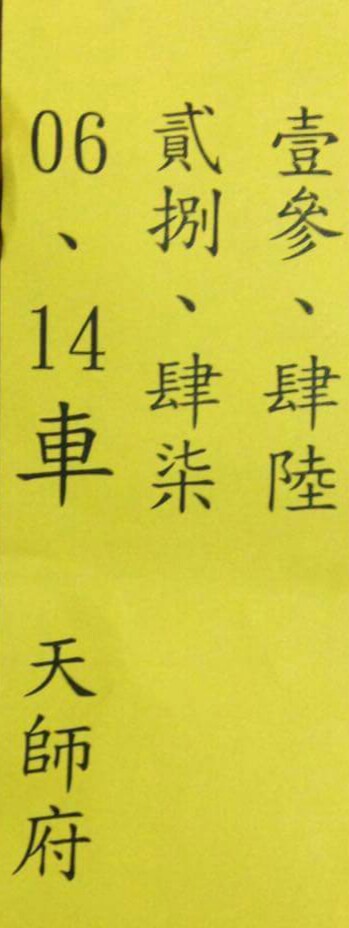 壹參、肆陸
貳捌、肆柒
06、14車 天師府